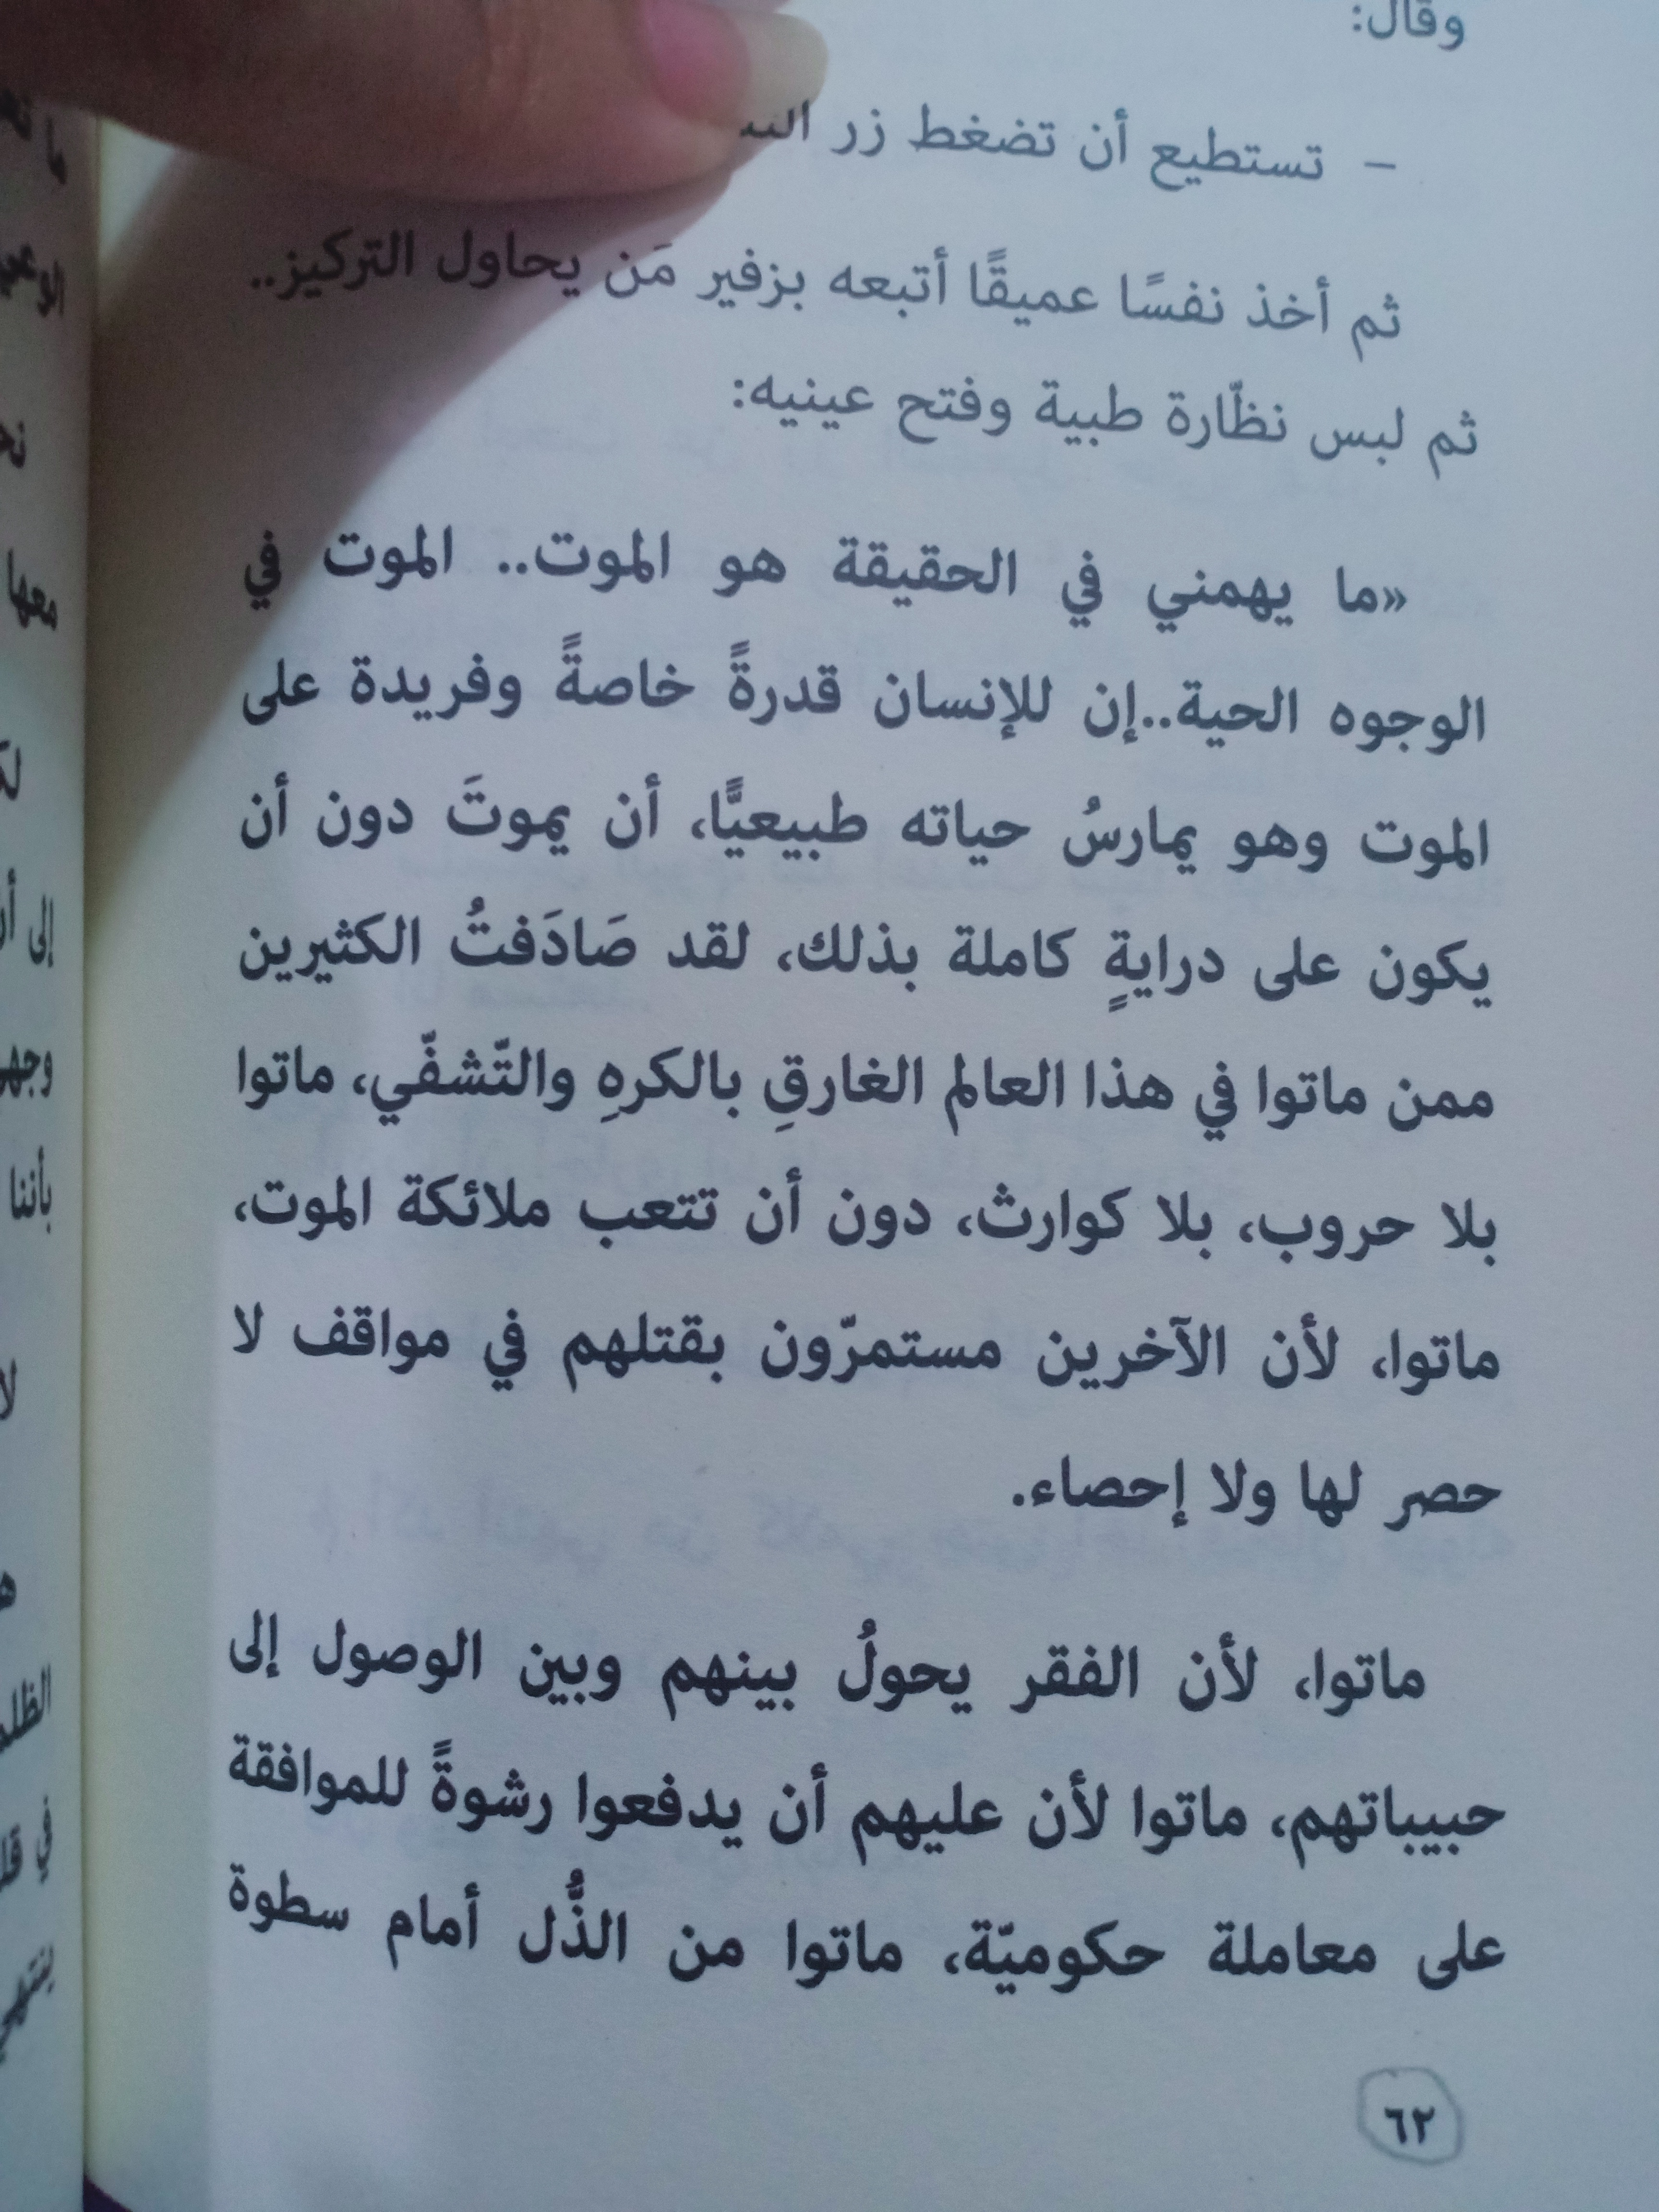 وقال:
– تستطيع أن تضغط زر
ثم أخذ نفسًا عميقًا أتبعه بزفير مَن يحاول التركيز..
ثم لبس نظّارة طبية وفتح عينيه:
«ما يهمني في الحقيقة هو الموت.. الموت في
الوجوه الحية..إن للإنسان قدرةً خاصةً وفريدة على
الموت وهو يمارسُ حياته طبيعيًّا، أن يموتَ دون أن
يكون على درايةٍ كاملة بذلك، لقد صَادَفتُ الكثيرين
ممن ماتوا في هذا العالم الغارقِ بالكرهِ والتّشفّي، ماتوا
بلا حروب، بلا كوارث، دون أن تتعب ملائكة الموت،
ماتوا، لأن الآخرين مستمرّون بقتلهم في مواقف لا
حصر لها ولا إحصاء.
ماتوا، لأن الفقر يحولُ بينهم وبين الوصول إلى
حبيباتهم، ماتوا لأن عليهم أن يدفعوا رشوةً للموافقة
على معاملة حكوميّة، ماتوا من الذُّل أمام سطوة
٦٢
معها
إلى
بأننا
في